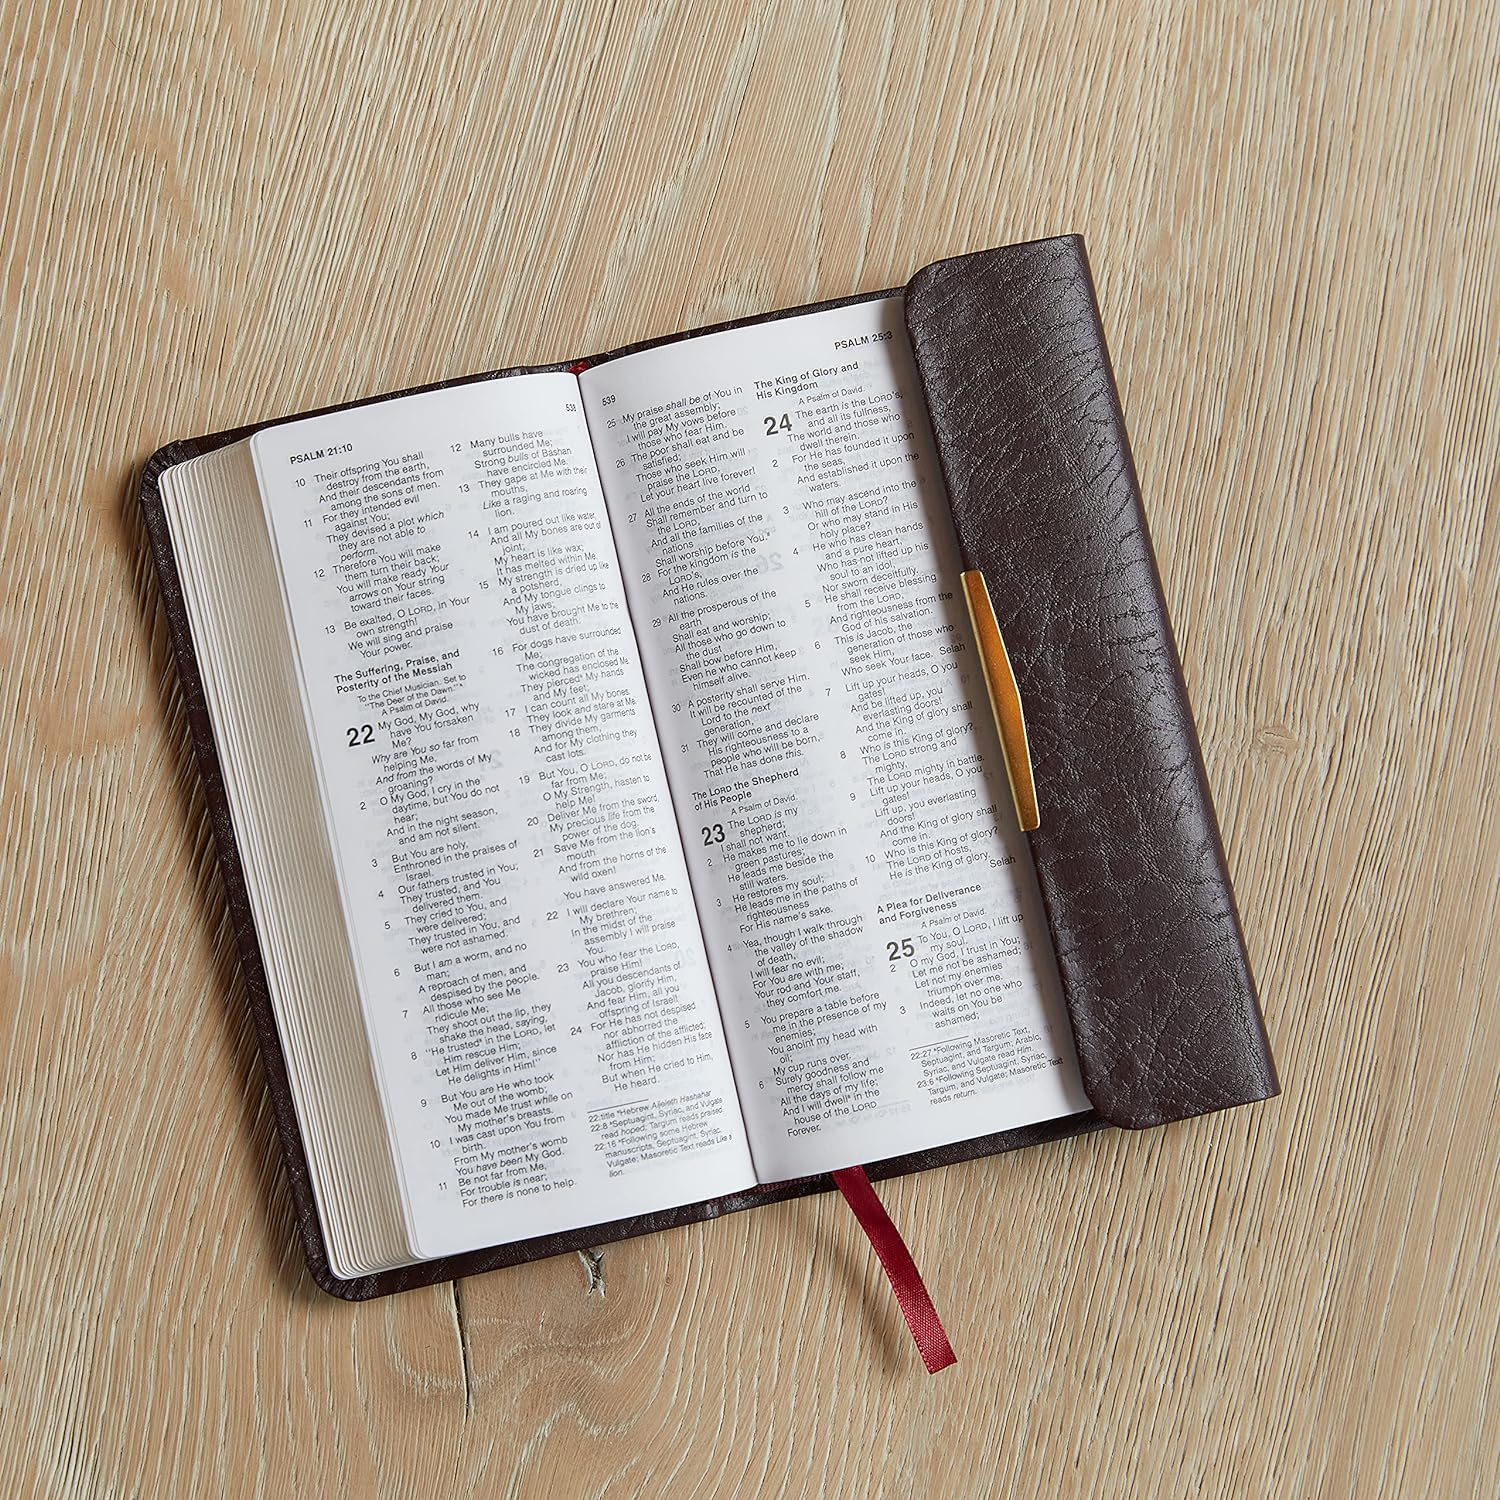 PSALM 21:10
538
10 Their offspring You shall
destroy from the earth,
And their descendants from
among the sons of men.
11 For they intended evil
against You;
They devised a plot which
they are not able to
perform.
12 Therefore You will make
them turn their back;
You will make ready Your
arrows on Your string
toward their faces.
13 Be exalted, O LORD, in Your
own strength!
We will sing and praise
Your power.
The Suffering, Praise, and
Posterity of the Messiah
To the Chief Musician. Set to
"The Deer of the Dawn."*
A Psalm of David.
22 My God, My God, why
have You forsaken
Me?
Why are You so far from
helping Me,
And from the words of My
groaning?
2 O My God, I cry in the
daytime, but You do not
hear;
And in the night season,
and am not silent.
3 But You are holy,
Enthroned in the praises of
Israel.
4 Our fathers trusted in You;
They trusted, and You
delivered them.
5 They cried to You, and
were delivered;
They trusted in You, and
were not ashamed.
6 But I am a worm, and no
man;
A reproach of men, and
despised by the people.
7 All those who see Me
ridicule Me;
They shoot out the lip, they
shake the head, saying,
8 "He trusted* in the LORD, let
Him rescue Him;
Let Him deliver Him, since
He delights in Him!"
9 But You are He who took
Me out of the womb;
You made Me trust while on
My mother's breasts.
10 I was cast upon You from
birth.
From My mother's womb
You have been My God.
11 Be not far from Me,
For trouble is near;
For there is none to help.
12 Many bulls have
surrounded Me;
Strong bulls of Bashan
have encircled Me.
13 They gape at Me with their
mouths,
Like a raging and roaring
lion.
14 I am poured out like water,
And all My bones are out of
joint;
My heart is like wax;
It has melted within Me.
15 My strength is dried up like
a potsherd,
And My tongue clings to
My jaws;
You have brought Me to the
dust of death.
16 For dogs have surrounded
Me;
The congregation of the
wicked has enclosed Me.
They pierced* My hands
and My feet;
17 I can count all My bones.
They look and stare at Me.
18 They divide My garments
among them,
And for My clothing they
cast lots.
19 But You, O LORD, do not be
far from Me;
O My Strength, hasten to
help Me!
20 Deliver Me from the sword,
My precious life from the
power of the dog.
21 Save Me from the lion's
mouth
And from the horns of the
wild oxen!
You have answered Me.
22 I will declare Your name to
My brethren;
In the midst of the
assembly I will praise
You.
23 You who fear the LORD,
praise Him!
All you descendants of
Jacob, glorify Him,
And fear Him, all you
offspring of Israel!
24 For He has not despised
nor abhorred the
affliction of the afflicted;
Nor has He hidden His face
from Him;
But when He cried to Him,
He heard.
22:title *Hebrew Aijeleth Hashahar
22:8 *Septuagint, Syriac, and Vulgate
read hoped; Targum reads praised.
22:16 *Following some Hebrew
manuscripts, Septuagint, Syriac,
Vulgate; Masoretic Text reads Like a
lion.
539
PSALM 25:3
25 My praise shall be of You in
the great assembly;
I will pay My vows before
those who fear Him.
26 The poor shall eat and be
satisfied;
Those who seek Him will
praise the LORD.
Let your heart live forever!
27 All the ends of the world
Shall remember and turn to
the LORD,
And all the families of the
nations
Shall worship before You.*
28 For the kingdom is the
LORD's,
And He rules over the
nations.
29 All the prosperous of the
earth
Shall eat and worship;
All those who go down to
the dust
Shall bow before Him,
Even he who cannot keep
himself alive.
30 A posterity shall serve Him.
It will be recounted of the
Lord to the next
generation,
31 They will come and declare
His righteousness to a
people who will be born,
That He has done this.
The LORD the Shepherd
of His People
A Psalm of David.
23 The LORD is my
shepherd;
I shall not want.
2 He makes me to lie down in
green pastures;
He leads me beside the
still waters.
3 He restores my soul;
He leads me in the paths of
righteousness
For His name's sake.
4 Yea, though I walk through
the valley of the shadow
of death,
I will fear no evil;
For You are with me;
Your rod and Your staff,
they comfort me.
5 You prepare a table before
me in the presence of my
enemies;
You anoint my head with
oil;
My cup runs over.
6 Surely goodness and
mercy shall follow me
All the days of my life;
And I will dwell* in the
house of the LORD
Forever.
The King of Glory and
His Kingdom
A Psalm of David.
24 The earth is the LORD's,
and all its fullness,
The world and those who
dwell therein.
2 For He has founded it upon
the seas,
And established it upon the
waters.
3 Who may ascend into the
hill of the LORD?
Or who may stand in His
holy place?
4 He who has clean hands
and a pure heart,
Who has not lifted up his
soul to an idol,
Nor sworn deceitfully.
5 He shall receive blessing
from the LORD,
And righteousness from the
God of his salvation.
6 This is Jacob, the
generation of those who
seek Him,
Who seek Your face. Selah
7 Lift up your heads, O you
gates!
And be lifted up, you
everlasting doors!
And the King of glory shall
come in.
8 Who is this King of glory?
The LORD strong and
mighty,
The LORD mighty in battle.
9 Lift up your heads, O you
gates!
Lift up, you everlasting
doors!
And the King of glory shall
come in.
10 Who is this King of glory?
The LORD of hosts,
He is the King of glory. Selah
A Plea for Deliverance
and Forgiveness
A Psalm of David.
25 To You, O LORD, I lift up
my soul.
2 O my God, I trust in You;
Let me not be ashamed;
Let not my enemies
triumph over me.
3 Indeed, let no one who
waits on You be
ashamed;
22:27 *Following Masoretic Text,
Septuagint, and Targum; Arabic,
Syriac, and Vulgate read Him.
23:6 *Following Septuagint, Syriac,
Targum, and Vulgate; Masoretic Text
reads return.